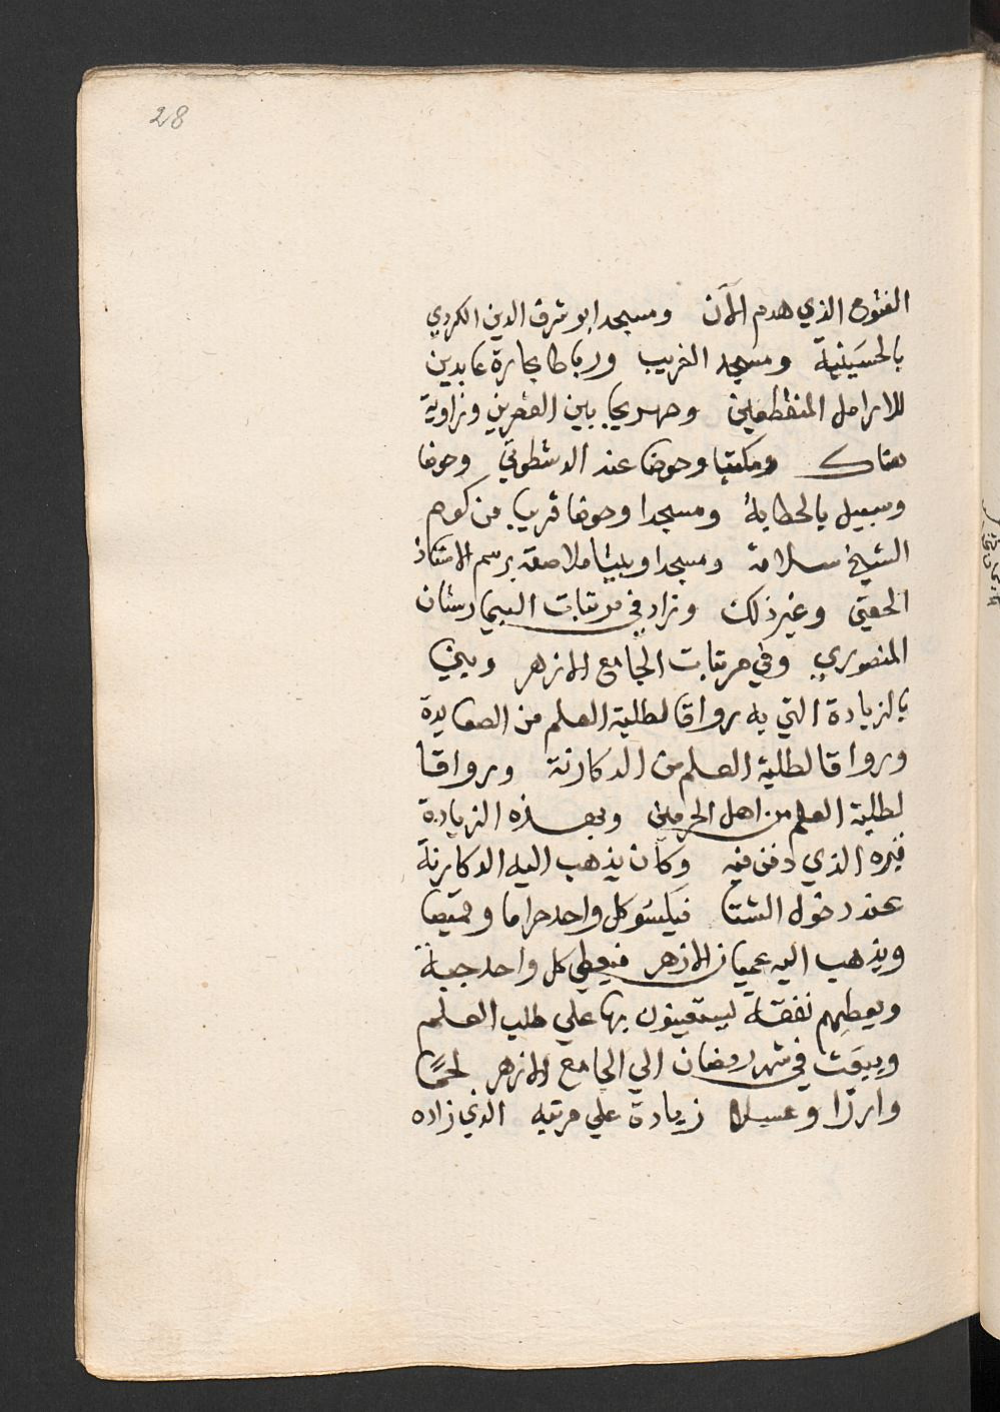 28
الفتوح الذي هدم الآن ومسجد ابو شرف الدين الكردي
بالحسَينية ومسجد الغريب ورباطا بحارة عابدين
للارامل المنقطعين وصهريجا بين القصرين وزاوية
هناك ومكتبا وحوضا عند الدشطوطي وحوضا
وسبيل بالحطابة ومسجدا وحوضا قريبا من كوم
الشيخ سلامة ومسجدا وبيتا ملاصقه برسم الاستاذ
الحفني وغير ذلك وزاد في مرتبات البيمارستان
المنصوري وفي مرتبات الجامع الازهر وبني
بالزيادة التي به رواقا لطلبة العلم من الصعايدة
ورواقا لطلبة العلم من الدكارنة ورواقا
لطلبة العلم من اهل الحرمين وبهذه الزيادة
قبره الذي دفن فيه وكان يذهب اليه الدكارنة
عند دخول الشتا فيكسُو كل واحد حراما وقميصا
ويذهب اليه عميان الازهر فيعطي كل واحد جبة
ويعطِيهم نفقة ليستعينون بها علي طلب العلم
ويبعَث في شهر رمضان الي الجامع الازهر لحمًا
وارزّا وعسلا زيادة علي مرتبه الذي زاده